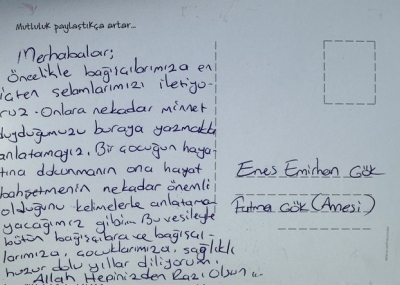 Mutluluk paylaştıkça artar...
Merhabalar;
Öncelikle bağışçılarımıza en
içten selamlarımızı iletiyo-
ruz. Onlara nekadar minnet
duyduğumuzu buraya yazmakla
anlatamayız. Bir çocuğun haya-
tına dokunmanın ona hayat
bahşetmenin nekadar önemli
olduğunu kelimelerle anlatama-
yacağımız gibi... Bu vesileyle
bütün bağışçılara ve bağışçıl-
larımıza, çocuklarımıza, sağlıklı
huzur dolu yıllar diliyorum.
Allah Hepinizden Razı Olsun...
Enes Emirhan Gök
Fatma Gök (Annesi)